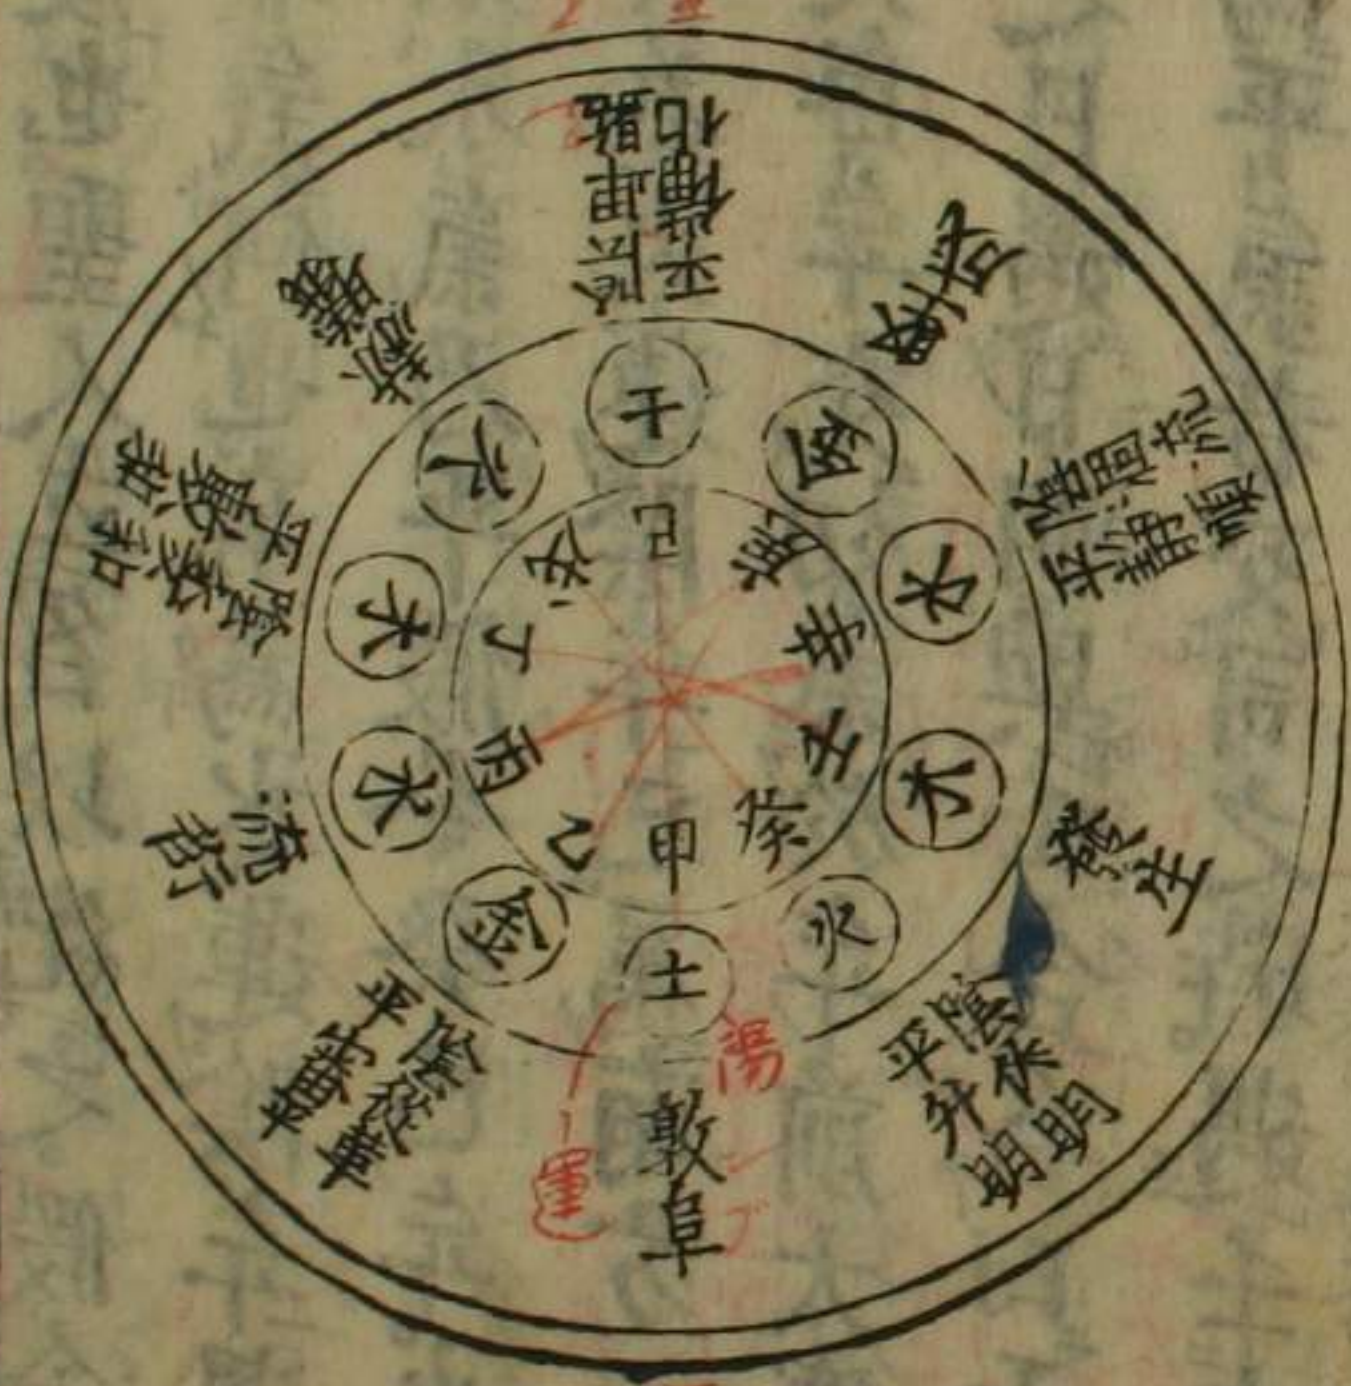 甲
乙
丙
丁
戊
己
庚
辛
壬
癸
土
金
水
木
火
土
金
水
木
火
敦阜
陰從革
平審平
流衍
陰委和
平敷和
赫曦
陰卑監
平備化
堅成
陰涸流
平靜順
發生
陰伏明
平升明
陽
運